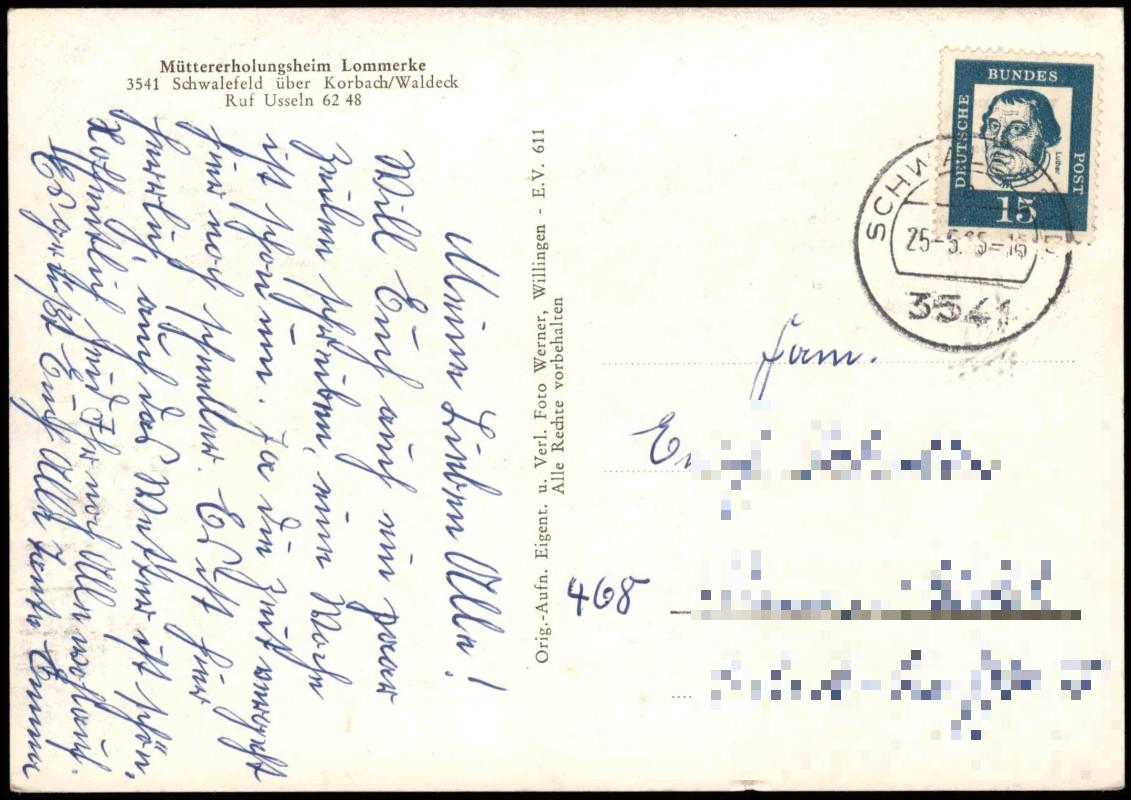 Müttererholungsheim Lommerke
3541 Schwalefeld über Korbach/Waldeck
Ruf Usseln 62 48
Meine Lieben Alle!
Will Euch auch ein paar
Zeilen schreiben, eine Woche
ist schon um. Ja die Zeit vergeht
hier noch schneller. Es ist hier
herrlich, auch das Wetter ist schön.
Hoffentlich seid Ihr noch Alle wohlauf.
Es grüßt Euch Alle Tante Emma
Orig.-Aufn. Eigent. u. Verl. Foto Werner, Willingen - E.V. 611
Alle Rechte vorbehalten
DEUTSCHE BUNDES POST
Luther
15
25-5.
3541
Fam.
468